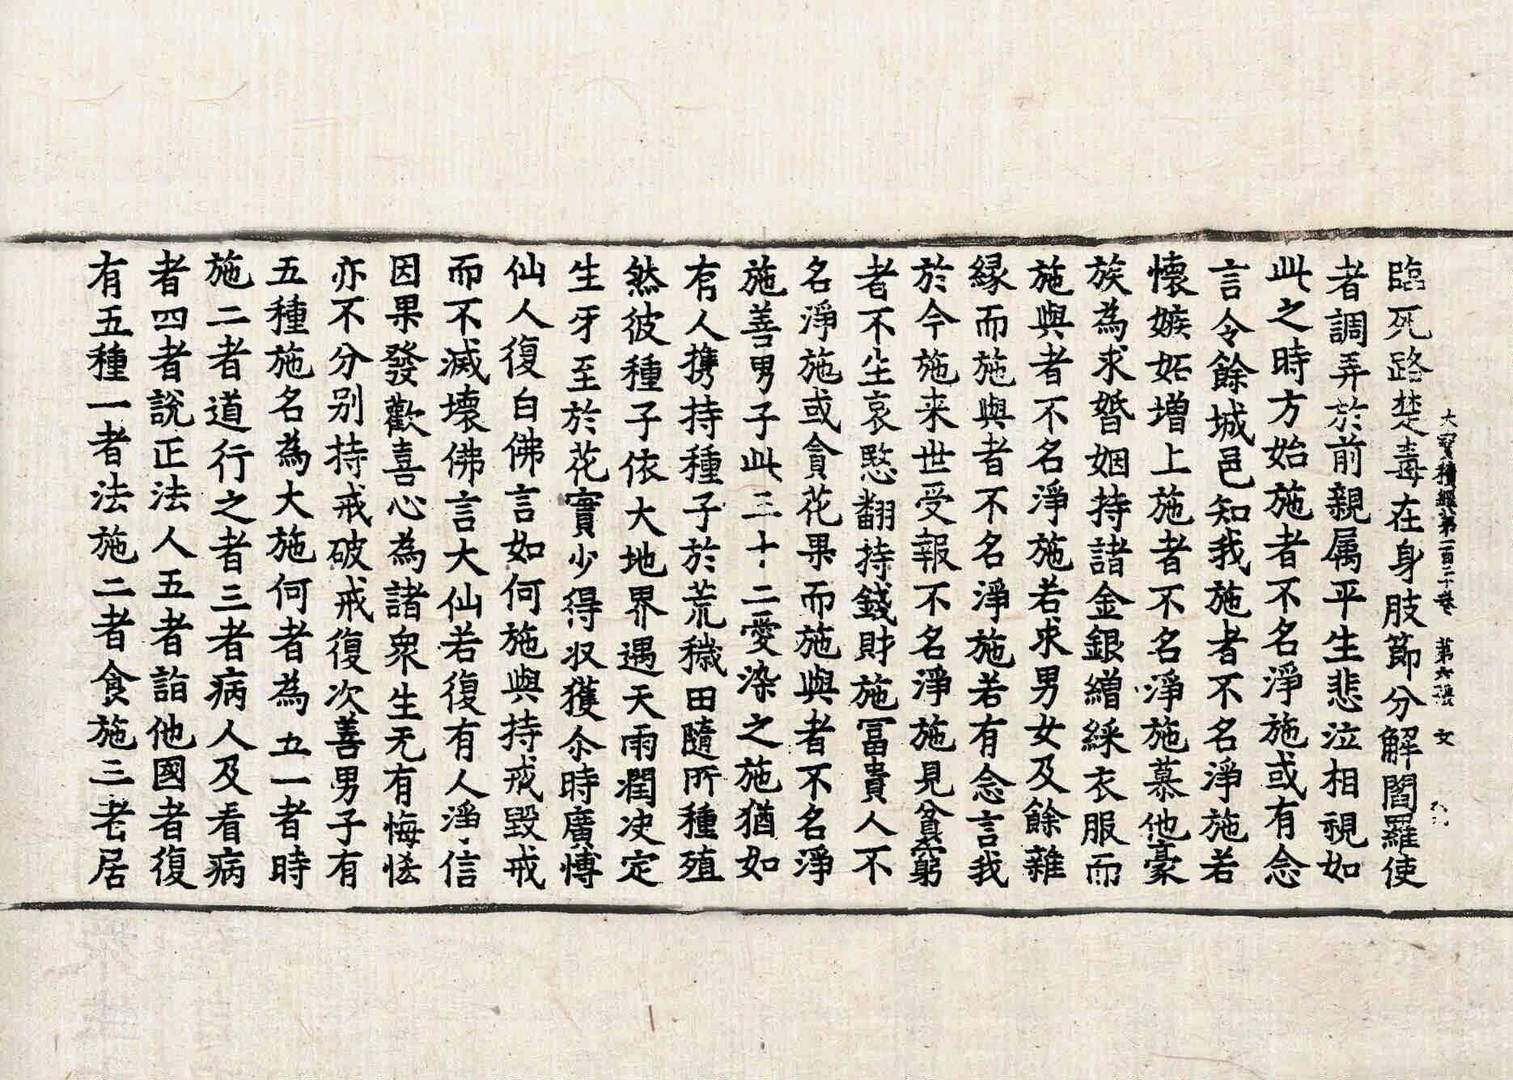 大寶積經第一百二十卷　第六張　女
臨死路楚毒在身肢節分解閻羅使
者調弄於前親属平生悲泣相視如
此之時方始施者不名淨施或有念
言令餘城邑知我施者不名淨施若
懷嫉妬增上施者不名淨施慕他豪
族為求婚姻持諸金銀繒綵衣服而
施與者不名淨施若求男女及餘雜
縁而施與者不名淨施若有念言我
於今施来世受報不名淨施見貧窮
者不生哀愍翻持錢財施冨貴人不
名淨施或貪花果而施與者不名淨
施善男子此三十二愛染之施猶如
有人携持種子於荒穢田隨所種殖
然彼種子依大地界遇天雨潤决定
生牙至於花實少得收獲尒時廣博
仙人復白佛言如何施與持戒毀戒
而不滅壞佛言大仙若復有人淨信
因果發歡喜心為諸衆生无有悔恡
亦不分别持戒破戒復次善男子有
五種施名為大施何者為五一者時
施二者道行之者三者病人及看病
者四者說正法人五者詣他國者復
有五種一者法施二者食施三者居